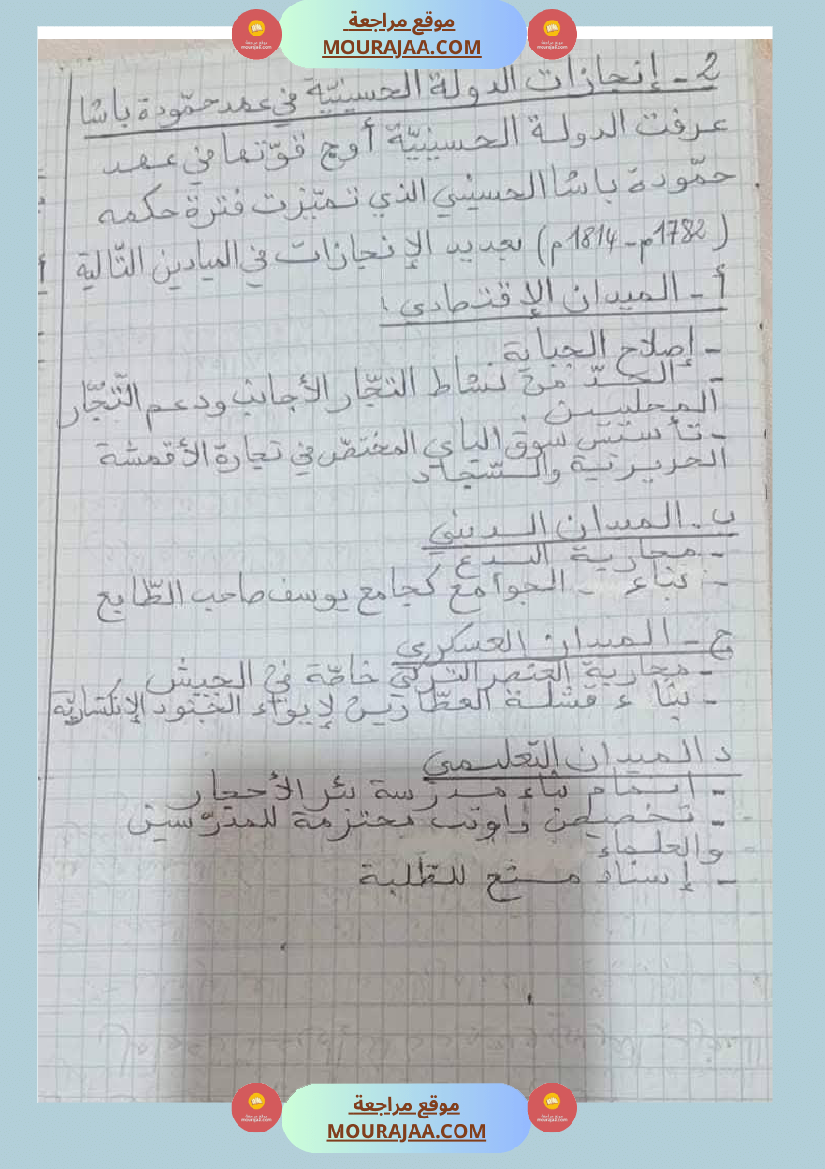 موقع مراجعة
MOURAJAA.COM
2 - إنجازات الدولة الحسينيّة في عهد حمّودة باشا
عرفت الدولة الحسينيّة أوج قوّتها في عهد
حمّودة باشا الحسيني الذي تميّزت فترة حكمه
(1782م - 1814م) بعديد الإنجازات في الميادين التّالية
أ - الميدان الإقتصادي
- إصلاح الجباية
- الحدّ من نشاط التجّار الأجانب ودعم التّجّار
المحليين.
- تأسيس سوق الباي المختصّ في تجارة الأقمشة
الحريرية والسّجاد
ب. الميدان الديني
- محاربة البدع
- بناء الجوامع كجامع يوسف صاحب الطّابع
ج - الميدان العسكري
- محاربة العنصر التركي خاصّة في الجيش
- بناء قشلة العطّارين لإيواء الجنود الإنكشاريّة
د الميدان التعليمي
- إتمام بناء مدرسة بئر الأحجار
- تخصيص رواتب محترمة للمدرّسين
والعلماء
- إسناد منح للطلبة
موقع مراجعة
MOURAJAA.COM